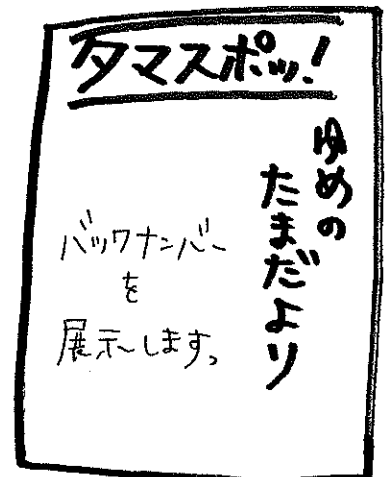 タマスポッ!
ゆめの
たまだより
バックナンバー
を
展示します。